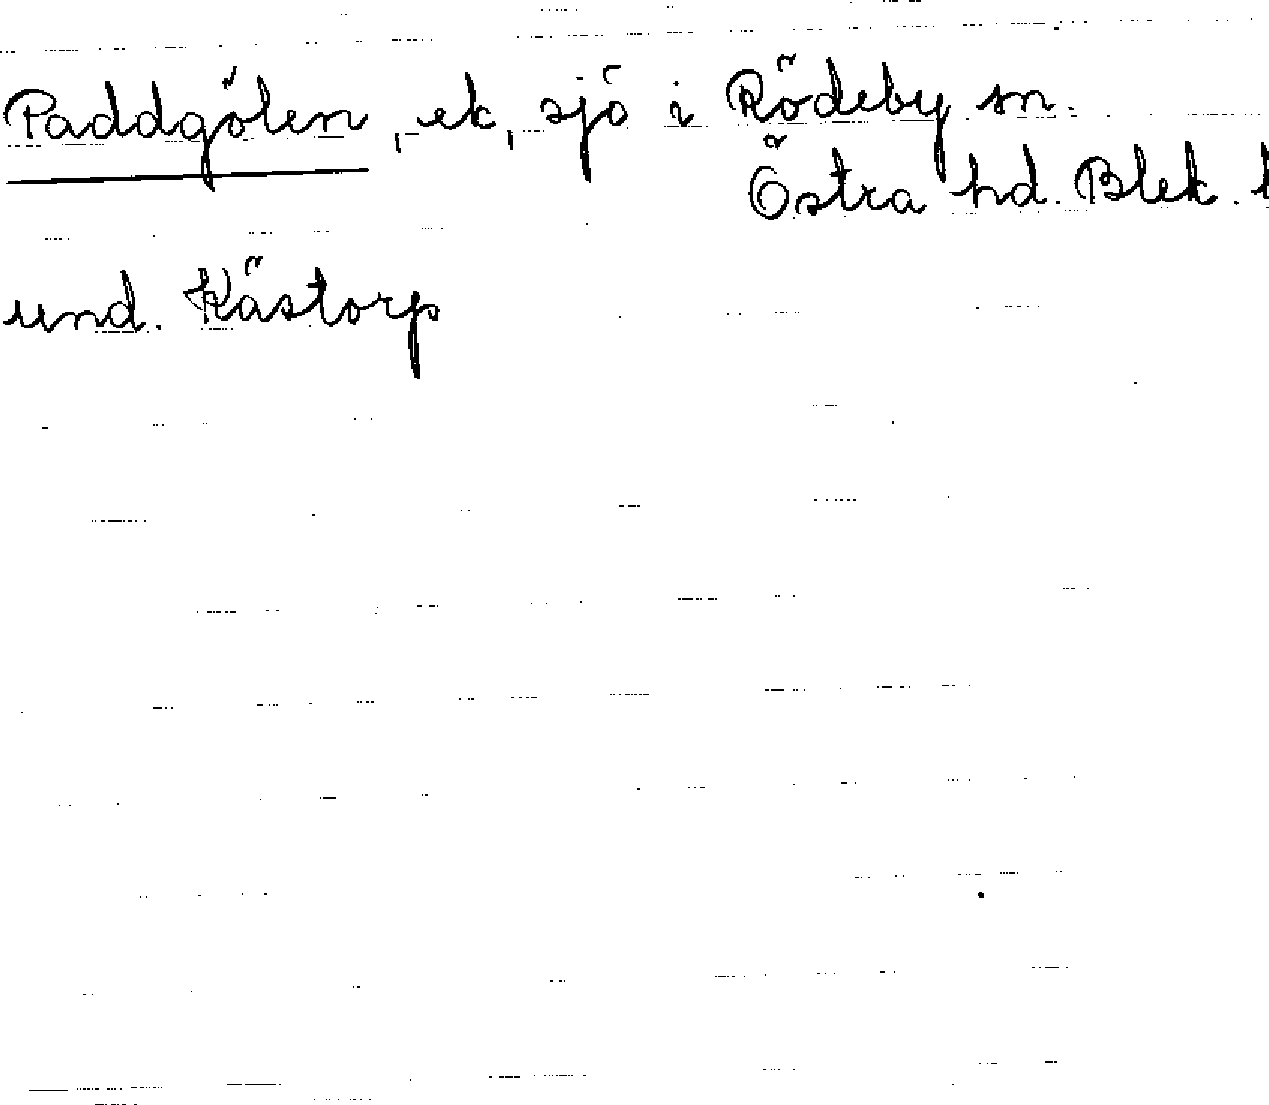 Paddgölen, ek, sjö i Rödeby sn.
Östra hd. Blek. l
und. Kästorp